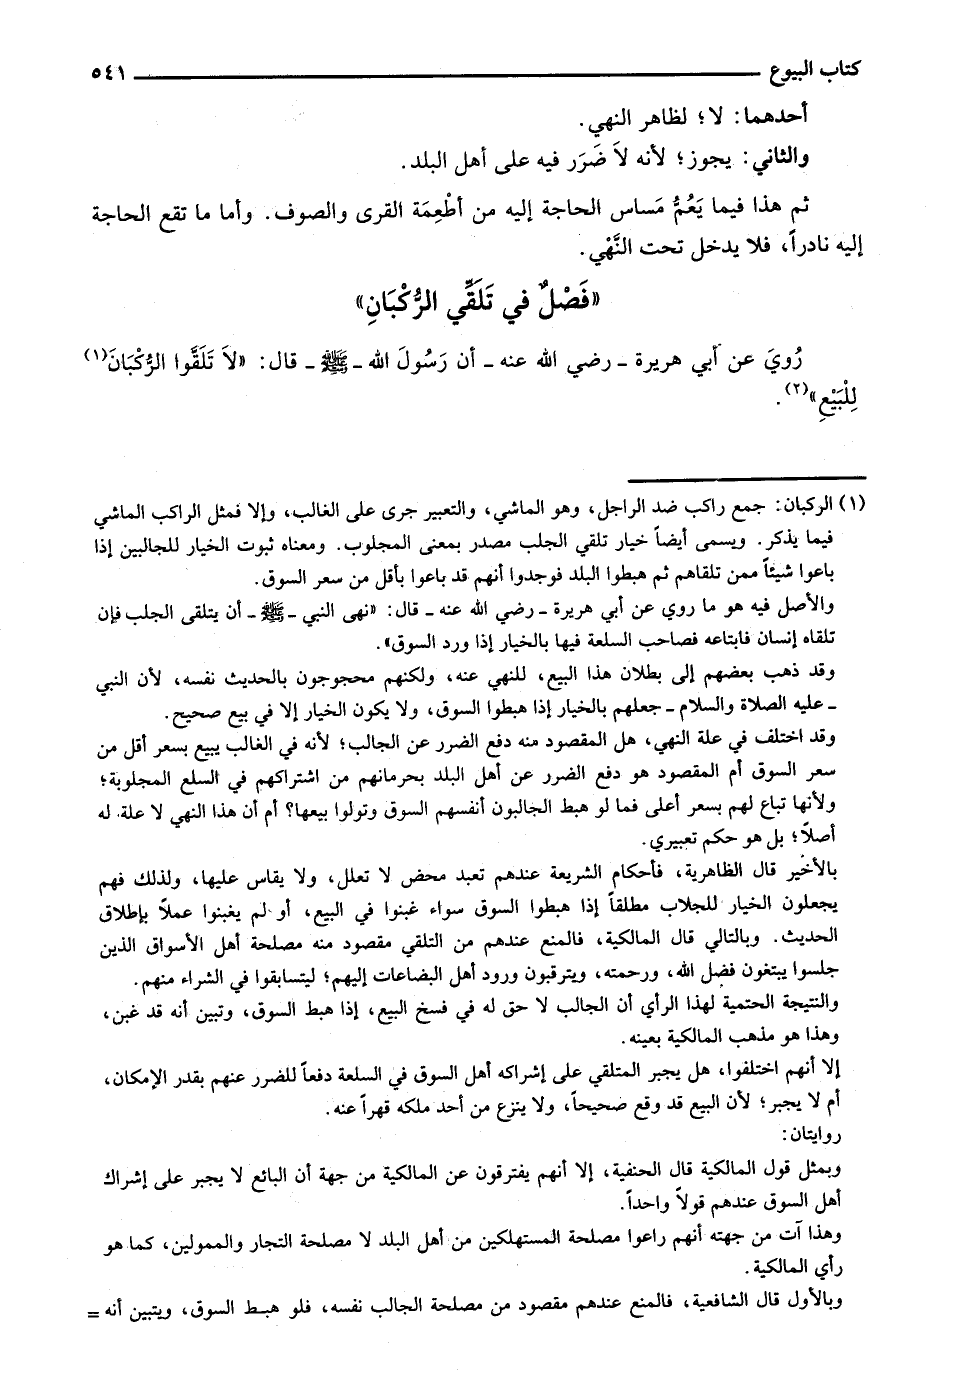 كتاب البيوع ٥٤١
أحدهما: لا؛ لظاهر النهي.
والثاني: يجوز؛ لأنه لاَ ضَرَر فيه على أهل البلد.
ثم هذا فيما يَعُمُّ مَساس الحاجة إليه من أطْعِمَة القرى والصوف. وأما ما تقع الحاجة
إليه نادراً، فلا يدخل تحت النَّهْي.
«فَصْلٌ في تَلَقِّي الرُّكْبَانِ»
رُويَ عن أبي هريرة ـ رضي الله عنه ـ أن رَسُولَ الله ـ ﷺ ـ قال: «لاَ تَلَقَّوا الرُّكْبَانَ(١)
لِلْبَيْعِ»(٢).
(١) الركبان: جمع راكب ضد الراجل، وهو الماشي، والتعبير جرى على الغالب، وإلا فمثل الراكب الماشي
فيما يذكر. ويسمى أيضاً خيار تلقي الجلب مصدر بمعنى المجلوب. ومعناه ثبوت الخيار للجالبين إذا
باعوا شيئاً ممن تلقاهم ثم هبطوا البلد فوجدوا أنهم قد باعوا بأقل من سعر السوق.
والأصل فيه هو ما روي عن أبي هريرة ـ رضي الله عنه ـ قال: «نهى النبي ـ ﷺ ـ أن يتلقى الجلب فإن
تلقاه إنسان فابتاعه فصاحب السلعة فيها بالخيار إذا ورد السوق».
وقد ذهب بعضهم إلى بطلان هذا البيع، للنهي عنه، ولكنهم محجوجون بالحديث نفسه، لأن النبي
ـ عليه الصلاة والسلام ـ جعلهم بالخيار إذا هبطوا السوق، ولا يكون الخيار إلا في بيع صحيح.
وقد اختلف في علة النهي، هل المقصود منه دفع الضرر عن الجالب؛ لأنه في الغالب يبيع بسعر أقل من
سعر السوق أم المقصود هو دفع الضرر عن أهل البلد بحرمانهم من اشتراكهم في السلع المجلوبة؛
ولأنها تباع لهم بسعر أعلى فما لو هبط الجالبون أنفسهم السوق وتولوا بيعها؟ أم أن هذا النهي لا علة له
أصلاً؛ بل هو حكم تعبيري.
بالأخير قال الظاهرية، فأحكام الشريعة عندهم تعبد محض لا تعلل، ولا يقاس عليها، ولذلك فهم
يجعلون الخيار للجلاب مطلقاً إذا هبطوا السوق سواء غبنوا في البيع، أو لم يغبنوا عملاً بإطلاق
الحديث. وبالتالي قال المالكية، فالمنع عندهم من التلقي مقصود منه مصلحة أهل الأسواق الذين
جلسوا يبتغون فضل الله، ورحمته، ويترقبون ورود أهل البضاعات إليهم؛ ليتسابقوا في الشراء منهم.
والنتيجة الحتمية لهذا الرأي أن الجالب لا حق له في فسخ البيع، إذا هبط السوق، وتبين أنه قد غبن،
وهذا هو مذهب المالكية بعينه.
إلا أنهم اختلفوا، هل يجبر المتلقي على إشراكه أهل السوق في السلعة دفعاً للضرر عنهم بقدر الإمكان،
أم لا يجبر؛ لأن البيع قد وقع صحيحاً، ولا ينزع من أحد ملكه قهراً عنه.
روايتان:
وبمثل قول المالكية قال الحنفية، إلا أنهم يفترقون عن المالكية من جهة أن البائع لا يجبر على إشراك
أهل السوق عندهم قولاً واحداً.
وهذا آت من جهته أنهم راعوا مصلحة المستهلكين من أهل البلد لا مصلحة التجار والممولين، كما هو
رأي المالكية.
وبالأول قال الشافعية، فالمنع عندهم مقصود من مصلحة الجالب نفسه، فلو هبط السوق، ويتبين أنه =